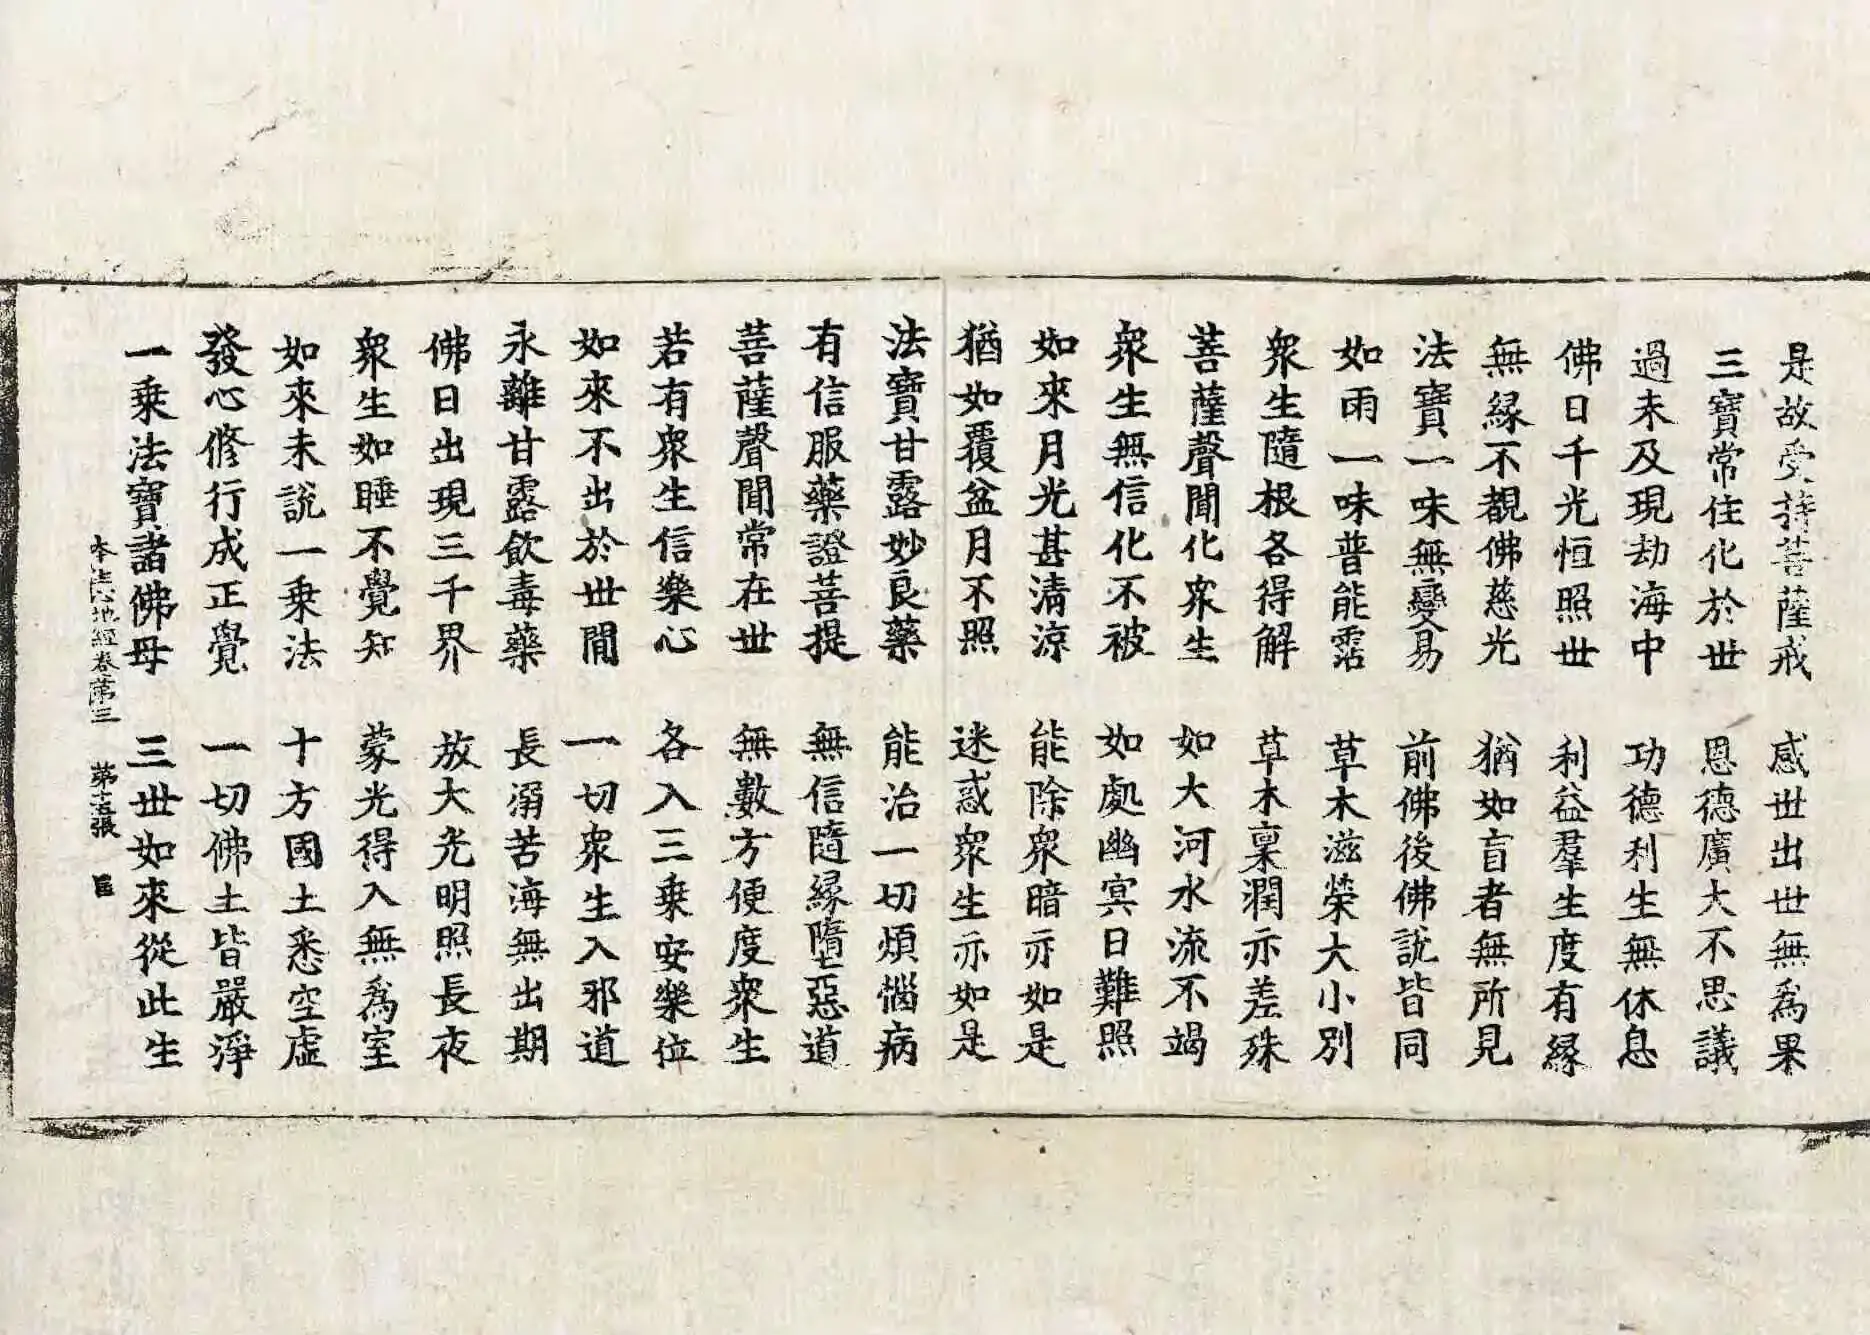 是故受持菩薩戒 感世出世無爲果
三寶常住化於世 恩德廣大不思議
過未及現劫海中 功德利生無休息
佛日千光恒照世 利益羣生度有緣
無緣不覩佛慈光 猶如盲者無所見
法寶一味無變易 前佛後佛說皆同
如雨一味普能霑 草木滋榮大小別
衆生隨根各得解 草木稟潤亦差殊
菩薩聲聞化衆生 如大河水流不竭
衆生無信化不被 如處幽冥日難照
如來月光甚清涼 能除衆暗亦如是
猶如覆盆月不照 迷惑衆生亦如是
法寶甘露妙良藥 能治一切煩惱病
有信服藥證菩提 無信隨緣墮惡道
菩薩聲聞常在世 無數方便度衆生
若有衆生信樂心 各入三乘安樂位
如來不出於世間 一切衆生入邪道
永離甘露飲毒藥 長溺苦海無出期
佛日出現三千界 放大光明照長夜
衆生如睡不覺知 蒙光得入無爲室
如來未說一乘法 十方國土悉空虛
發心修行成正覺 一切佛土皆嚴淨
一乘法寶諸佛母 三世如來從此生
本生心地經卷第三 第十五張